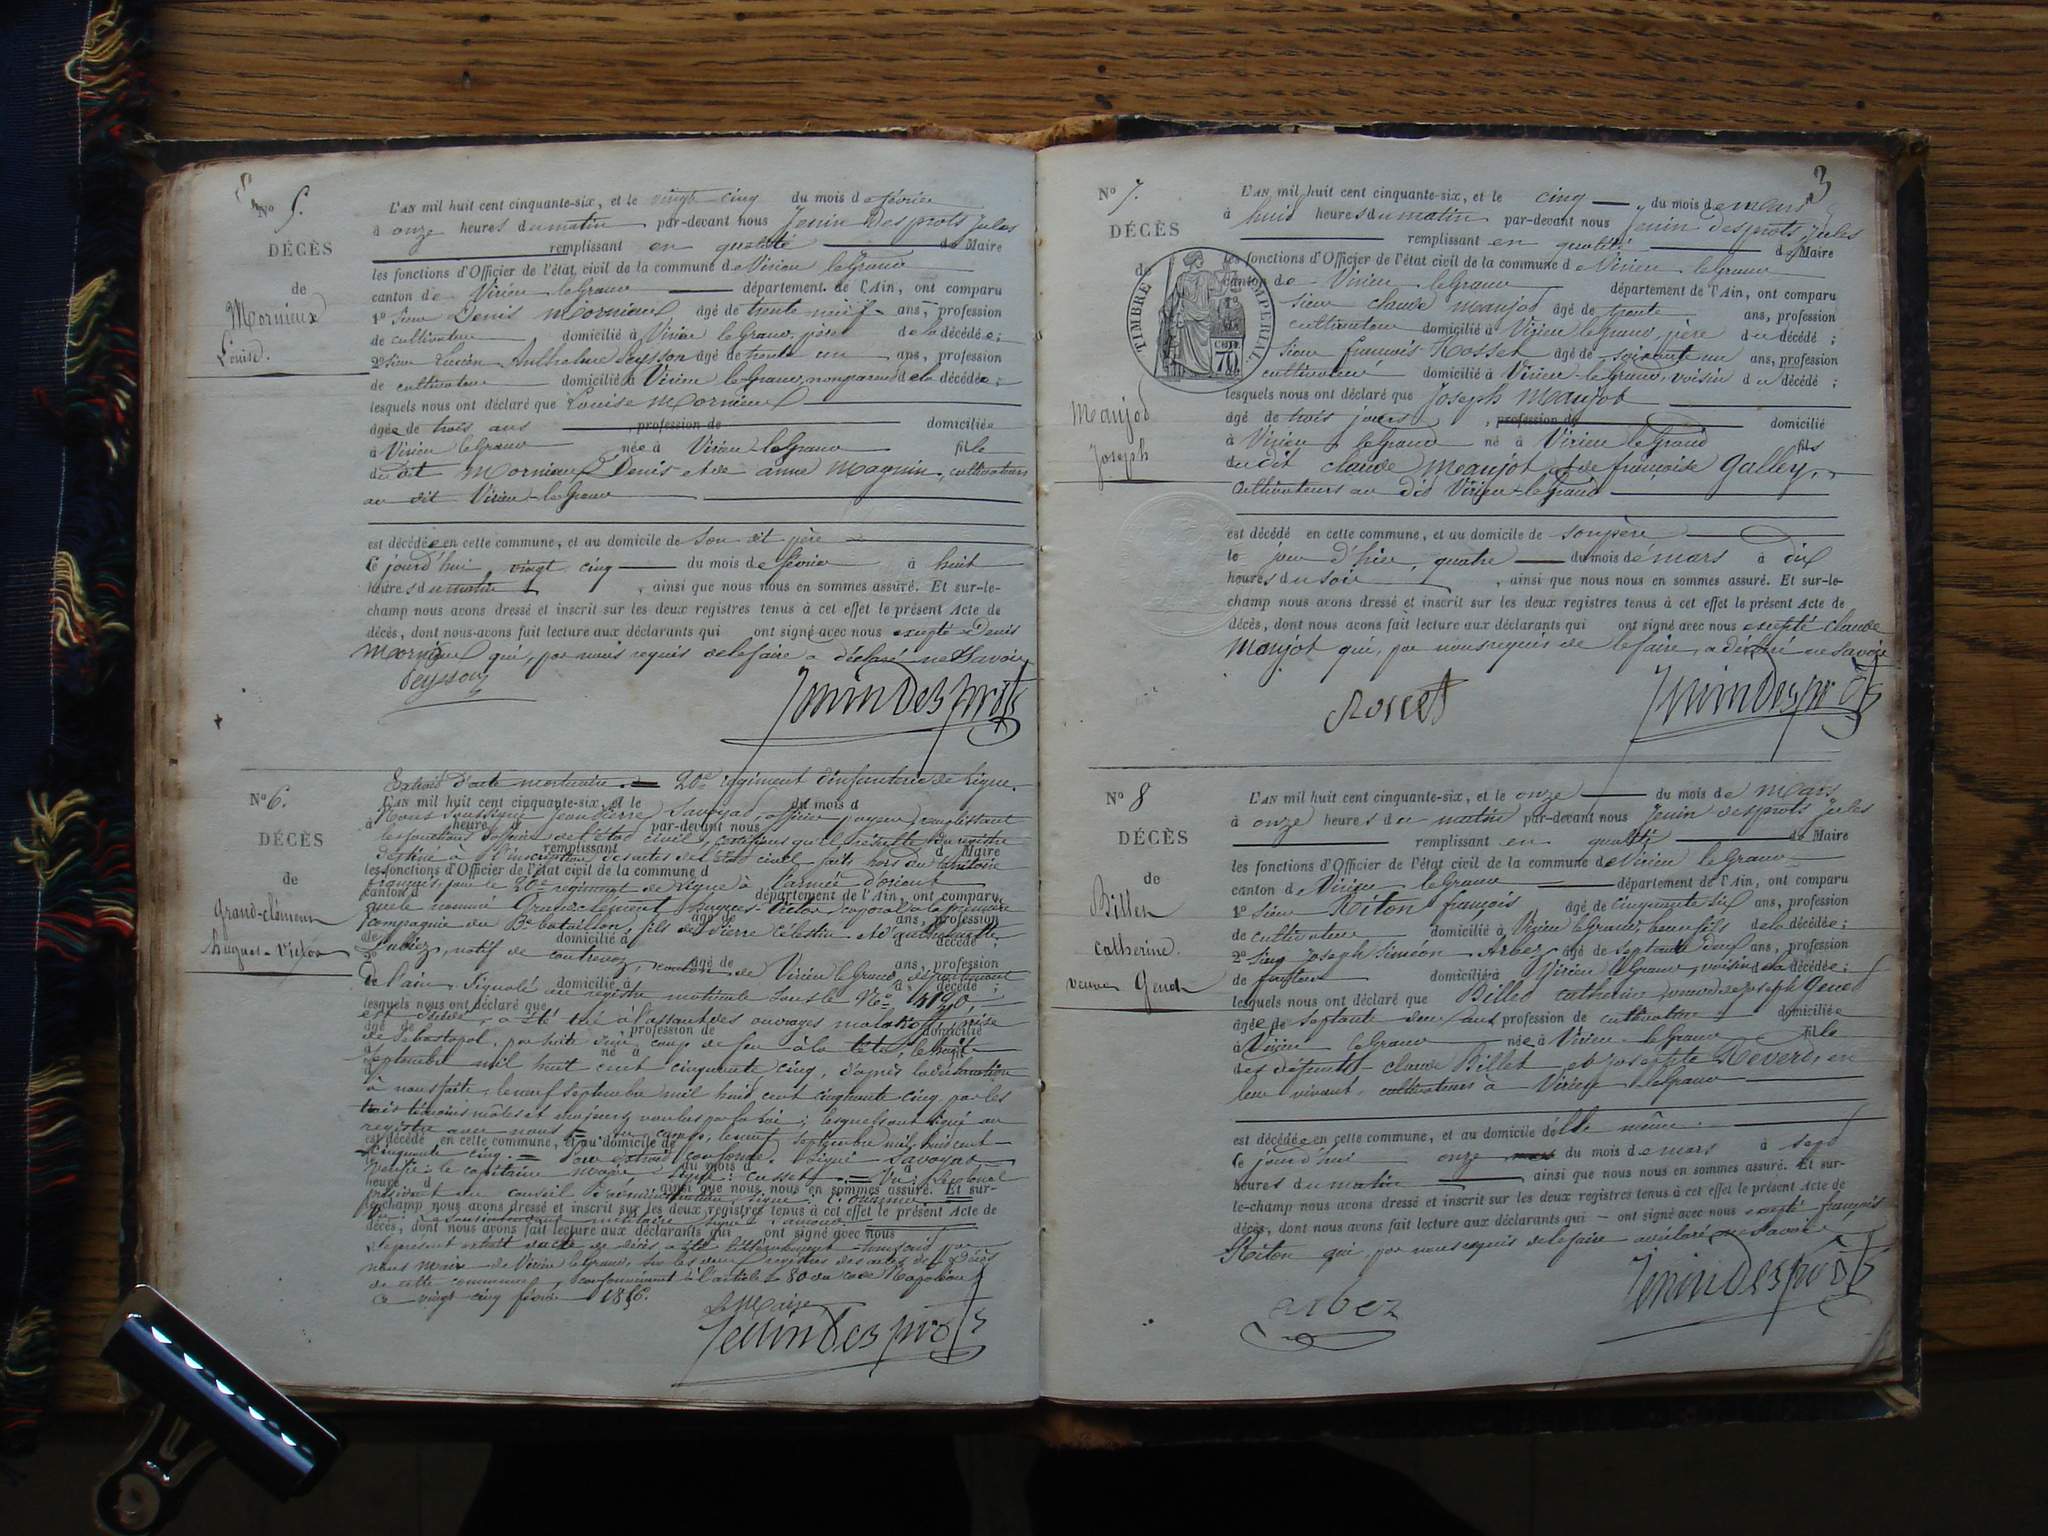 N° 5.
DÉCÈS
de
Mornieux
Louise.
L'AN mil huit cent cinquante-six, et le vingt cinq du mois de février
à onze heures du matin par-devant nous Jenin Desprots Jules
remplissant en qualité de Maire
les fonctions d'Officier de l'état civil de la commune de Virieu le Grand
canton de Virieu le Grand département de l'Ain, ont comparu
1° Sieur Denis Mornieux âgé de trente neuf ans, profession
de cultivateur domicilié à Virieu le Grand, père de la décédée;
2° Sieur Anthelme Peysson âgé de trente un ans, profession
de cultivateur domicilié à Virieu le Grand, non parent de la décédée;
lesquels nous ont déclaré que Louise Mornieux
âgée de trois ans profession de domiciliée
à Virieu le Grand née à Virieu-le-Grand fille
du dit Mornieux Denis et de anne Magnin, cultivateurs
au dit Virieu-le-Grand
est décédée en cette commune, et au domicile de son dit père
le jourd'hui vingt cinq du mois de février à huit
heures du matin, ainsi que nous nous en sommes assuré. Et sur-le-
champ nous avons dressé et inscrit sur les deux registres tenus à cet effet le présent Acte de
décès, dont nous avons fait lecture aux déclarants qui ont signé avec nous excepté Denis
Mornieux qui, par nous requis de le faire a déclaré ne savoir
Peysson
Jenin Desprots
N° 6.
DÉCÈS
de
Grand-clément
hugues-Victor
Extrait d'acte mortuaire. = 20e régiment d'infanterie de ligne.
L'AN mil huit cent cinquante-six, et le du mois d
Nous soussigné Jean Pierre Savoyat, officier payeur, remplissant
à heure d par-devant nous
les fonctions d'officier de l'état civil, certifions qu'il résulte du registre
remplissant d Maire
destiné à l'inscription des actes de l'état civil, faits hors du territoire
les fonctions d'Officier de l'état civil de la commune d
français, pour le 20e régiment de ligne à l'armée d'orient
canton d département de l'Ain, ont comparu
que le nommé Grandclément hugues-Victor, caporal à la
âgé de ans, profession
compagnie du Bataillon, fils de Pierre Célestin et d'
de domicilié à d décédé
natif de contrevoz, canton de Virieu le Grand, département
âgé de ans, profession
de l'ain, signalé au registre matricule sous le N° 4120
domicilié à décédé;
lesquels nous ont déclaré que
est décédé, a été tué à l'assaut des ouvrages malakoff, prise
âgé de profession de domicilié
de Sébastopol, par suite d'un coup de feu à la tête, le huit
né à
septembre mil huit cent cinquante cinq, d'après la déclaration
à nous faite, le neuf septembre mil huit cent cinquante cinq, par les
trois témoins mâles et majeurs voulus par la loi; lesquels ont signé au
registre avec nous = au camp, le neuf septembre mil huit cent
est décédé en cette commune, et au domicile de
cinquante cinq. = Pour extrait conforme. signé Savoyat
le du mois d à
vérifié: le capitaine major signé: Cusset = Vu: le colonel
heure d ainsi que nous nous en sommes assuré. Et sur-
président du conseil d'administration, signé
le-champ nous avons dressé et inscrit sur les deux registres tenus à cet effet le présent Acte de
militaire signé
décès, dont nous avons fait lecture aux déclarants qui ont signé avec nous
le présent extrait d'acte de décès a été littéralement transcrit par
nous maire de Virieu le Grand, sur les deux registres des actes de décès
de cette commune, conformément à l'article 80 du code Napoléon
ce vingt cinq février 1856.
Le Maire
Jenin Desprots
3
N° 7.
DÉCÈS
de
TIMBRE IMPERIAL
70
Maujot
Joseph
L'AN mil huit cent cinquante-six, et le cinq du mois de mars
à huit heures du matin par-devant nous Jenin Desprots Jules
remplissant en qualité de Maire
les fonctions d'Officier de l'état civil de la commune de Virieu le Grand
canton de Virieu le Grand département de l'Ain, ont comparu
sieur claude Maujot âgé de trente ans, profession
cultivateur domicilié à Virieu le grand, père du décédé;
sieur francois Rosset âgé de soixante un ans, profession
cultivateur domicilié à Virieu-le-Grand, voisin du décédé;
lesquels nous ont déclaré que Joseph Maujot
âgé de trois jours, profession de domicilié
à Virieu le Grand né à Virieu le Grand fils
du dit claude Maujot et de françoise Galley,
cultivateurs au dit Virieu-le-Grand
est décédé en cette commune, et au domicile de son père
le jour d'hier, quatre du mois de mars à dix
heures du soir, ainsi que nous nous en sommes assuré. Et sur-le-
champ nous avons dressé et inscrit sur les deux registres tenus à cet effet le présent Acte de
décès, dont nous avons fait lecture aux déclarants qui ont signé avec nous excepté claude
Maujot qui, par nous requis de le faire, a déclaré ne savoir
Rosset
Jenin Desprots
N° 8
DÉCÈS
de
Billet
catherine.
veuve Genet
L'AN mil huit cent cinquante-six, et le onze du mois de Mars
à onze heures du matin par-devant nous Jenin desprots Jules
remplissant en qualité de Maire
les fonctions d'Officier de l'état civil de la commune de Virieu le Grand
canton de Virieu le Grand département de l'Ain, ont comparu
1° Sieur Riton françois âgé de cinquante six ans, profession
de cultivateur domicilié à Virieu le Grand, beau fils de la décédée;
2° Sieur joseph Siméon Arbez âgé de septante deux ans, profession
de domicilié à Virieu le Grand, voisin de la décédée;
lesquels nous ont déclaré que Billet catherine, veuve de joseph Genet
âgée de septante deux ans profession de cultivatrice domiciliée
à Virieu le Grand née à Virieu le Grand fille
des défunts claude Billet et josephte Reverd, en
leur vivant, cultivateurs à Virieu le Grand
est décédée en cette commune, et au domicile d'elle même.
le jourd'hui onze du mois de mars à sept
heures du matin ainsi que nous nous en sommes assuré. Et sur-
le-champ nous avons dressé et inscrit sur les deux registres tenus à cet effet le présent Acte de
décès, dont nous avons fait lecture aux déclarants qui ont signé avec nous excepté françois
Riton qui, par nous requis de le faire a déclaré ne savoir
Arbez
Jenin Desprots